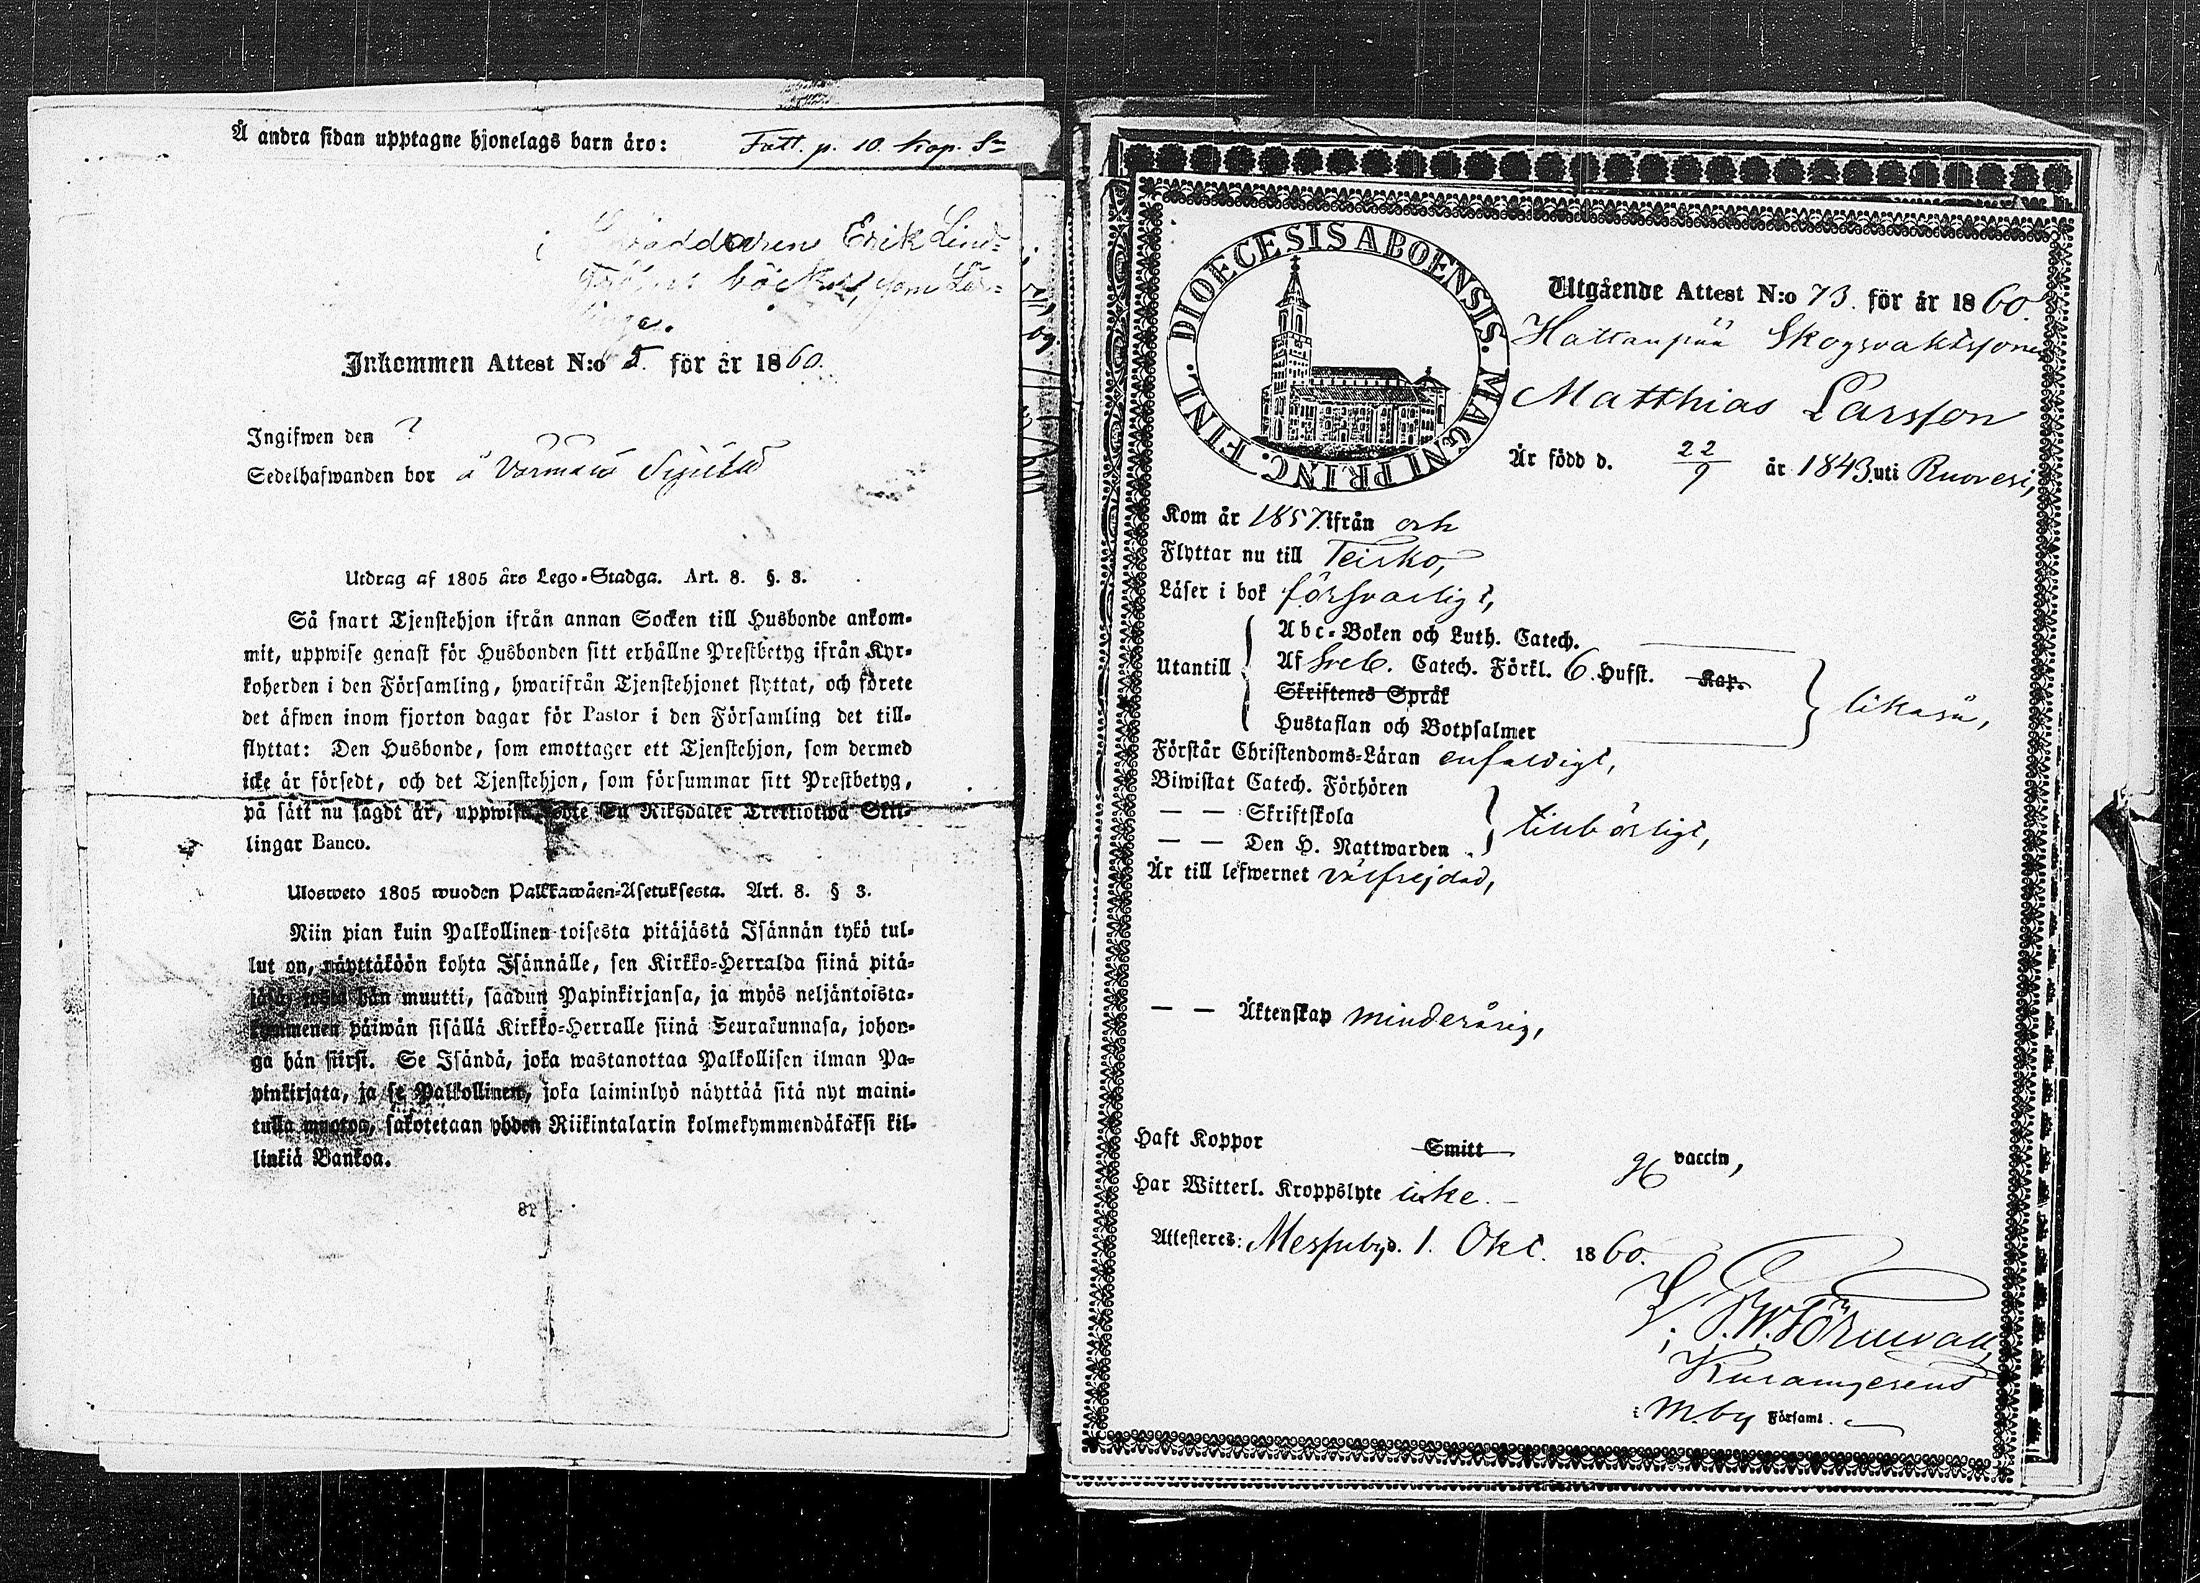 Å andra sidan upptagne hjonelags barn äro: Fatt. p. 10. kap. Sn
Erik Lind=
böcker, som Lär=
Inkommen Attest N:o 5. för år 1860.
Ingifwen den ?
Sedelhafwanden bor å
Utdrag af 1805 års Lego-Stadga. Art. 8. §. 3.
Så snart Tjenstehjon ifrån annan Socken till Husbonde ankom-
mit, uppwise genast för Husbonden sitt erhållne Prestbetyg ifrån Kyr-
koherden i den Församling, hwarifrån Tjenstehjonet flyttat, och förete
det äfwen inom fjorton dagar för Pastor i den Församling det till-
flyttat: Den Husbonde, som emottager ett Tjenstehjon, som dermed
icke är försedt, och det Tjenstehjon, som försummar sitt Prestbetyg,
på sätt nu sagdt är, uppwisa, böte En Riksdaler Trettiotwå Skil-
lingar Banco.
Ulosweto 1805 wuoden Palkkawäen-Asetuksesta. Art. 8. § 3.
Niin pian kuin Palkollinen toisesta pitäjästä Isännän tykö tul-
lut on, näyttäköön kohta Isännälle, sen Kirkko-Herralda siinä pitä-
jäsä, josta hän muutti, saadun Papinkirjansa, ja myös neljäntoista-
kymmenen päiwän sisällä Kirkko-Herralle siinä Seurakunnasa, johon-
ga hän siirsi. Se Isändä, joka wastanottaa Palkollisen ilman Pa-
pinkirjata, ja se Palkollinen, joka laiminlyö näyttää sitä nyt maini-
tulla muotoa, sakotetaan yhden Riikintalarin kolmekymmendäkäksi kil-
linkiä Bankoa.
DIOECESIS ABOENSIS. MAGNI PRINC. FINL.
Utgående Attest N:o 73. för år 1860.
Hattanpää Skogsvaktssonen
Matthias Larsson
Är född d. 22/9 år 1843. uti Ruovesi,
Kom år 1857. ifrån och
Flyttar nu till Teisko,
Läser i bok försvarligt,
Abc-Boken och Luth. Catech.
Utantill Af Sveb. Catech. Förkl. 6. Hufst. Kap. likaså,
Skriftenes Språk
Hustaflan och Botpsalmer
Förstår Christendoms-Läran enfaldigt,
Biwistat Catech. Förhören
— — Skriftskola tillbörligt,
— — Den H. Nattwarden
Är till lefwernet välfrejdad,
— — Äktenskap minderårig,
Haft Koppor Smitt vaccin,
Har Witterl. Kroppslyte icke. –
Attesteres: Messuby d. 1. Okt. 1860.
i M.by Församl.